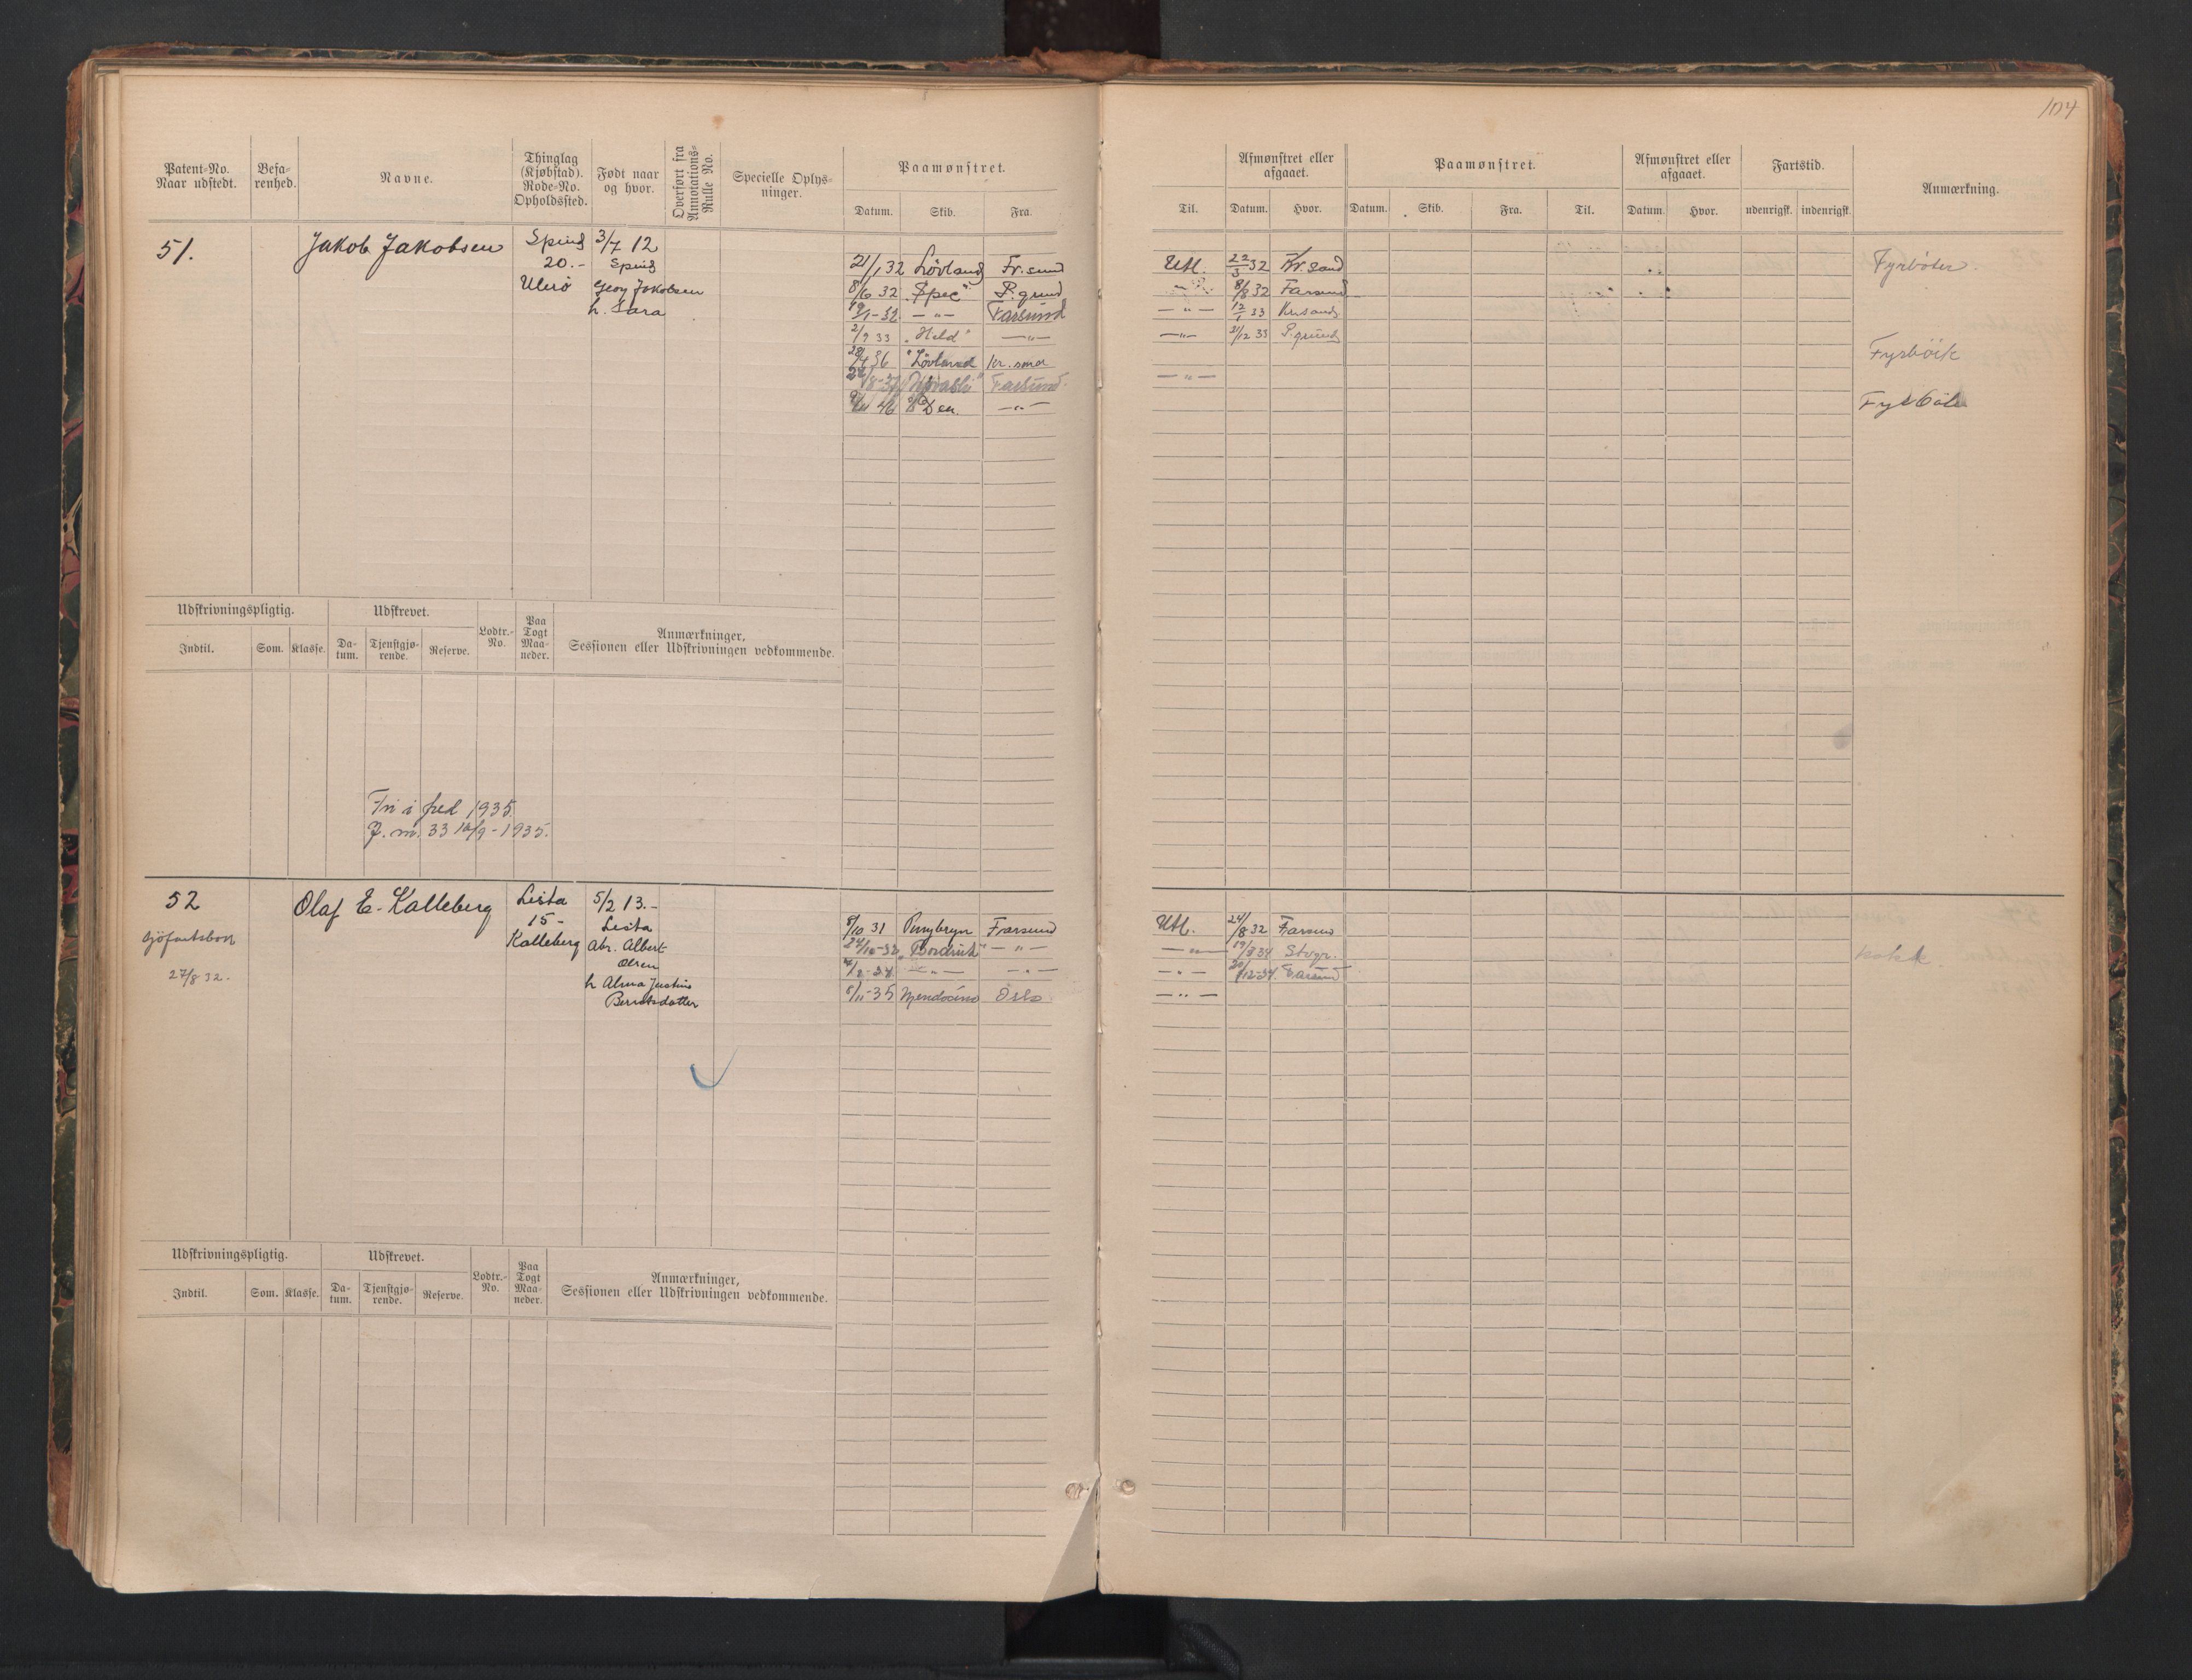 104
Patent-No. Naar udstedt.
Befa-renhed.
Navne.
Thinglag (Kjøbstad). Rode-No. Opholdssted.
Født naar og hvor.
Overført fra Annotations-Rulle No.
Specielle Oplys-ninger.
Paamønstret.
Datum. Skib. Fra.
Til.
Afmønstret eller afgaaet.
Datum. Hvor.
Paamønstret.
Datum. Skib. Fra. Til.
Afmønstret eller afgaaet.
Datum. Hvor.
Fartstid.
udenrigsk. indenrigsk.
Anmærkning.
51.
Jakob Jakobsen
Spind
20.-
Ulerø
3/7 12
Spind
Georg Jakobsen
h. Sara
21/1 32 Lövland Fr.sund Utl. 22/3 32 Kr.sand Fyrböter.
8/6 32 "Spec" P.grund -"- 8/8 32 Farsund
-"- Farsund -"- 12/1 33 Kr.sand
2/9 33 "Held" -"- -"- 21/12 33 P.grund
36 "Lövland" Kr.sand Fyrböt
Farsund -"-
46 -"- Fyrböt
Udskrivningspligtig.
Indtil. Som. Klasse.
Udskrevet.
Da-tum. Tjenstgjø-rende. Reserve.
Lodtr.-No.
Paa Togt Maa-neder.
Anmærkninger,
Sessionen eller Udskrivningen vedkommende.
Fri i fred 1935.
J. m. 33 12/9-1935.
52
Sjöfartsbok
27/8 32.
Olaf E. Kalleberg
Lista
15-
Kalleberg
5/2 13.-
Lista
Abr. Albert
Olsen
h Alma Justine
Berntsdatter
8/10 31 Farsund Utl. 24/8 32 Farsund
24/10-32 -"- -"- 19/3 34 Stvgr. kokk
-"- -"- -"- 20/12-34 Farsund
8/11-35 Mendocino Oslo -"-
Udskrivningspligtig.
Indtil. Som. Klasse.
Udskrevet.
Da-tum. Tjenstgjø-rende. Reserve.
Lodtr.-No.
Paa Togt Maa-neder.
Anmærkninger,
Sessionen eller Udskrivningen vedkommende.